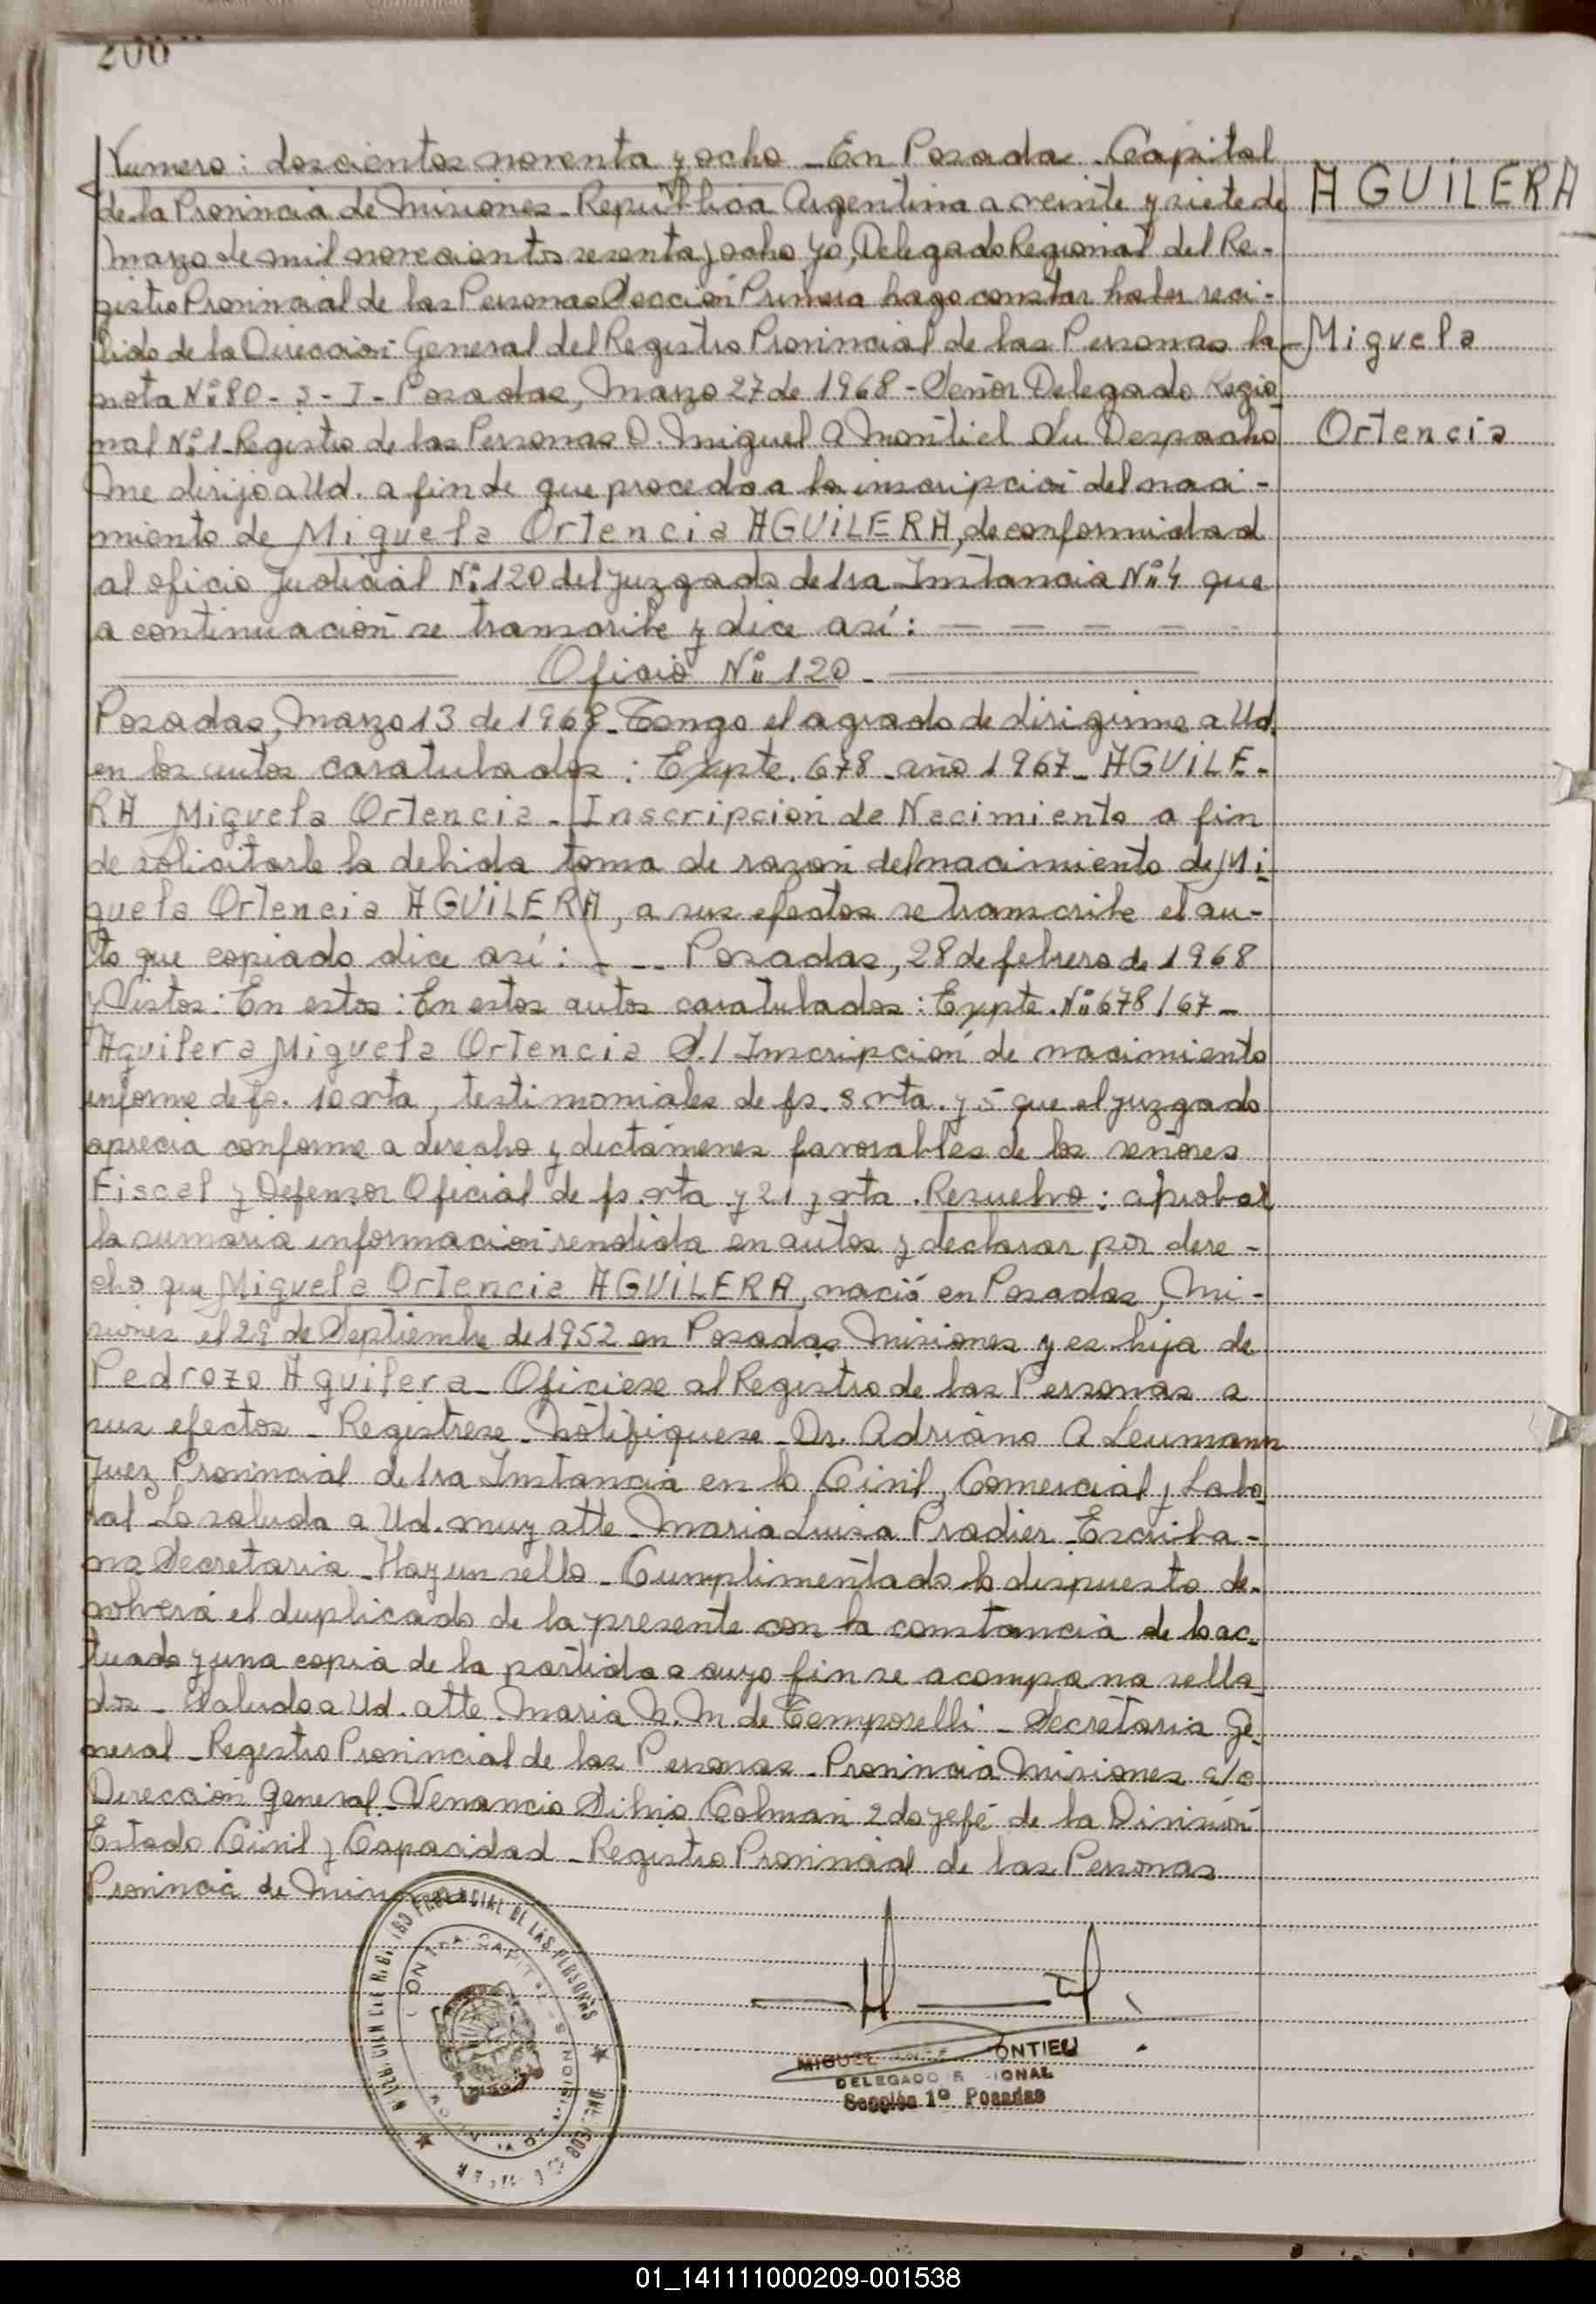 200
Numero: doscientos noventa y ocho - En Posada - Capital
de la Provincia de Misiones - Republica Argentina a veinte y siete de
marzo de mil novecientos sesenta y ocho yo, Delegado Regional del Re-
gistro Provincial de las Personas Sección Primera hago constar haber reci-
bido de la Direccion General del Registro Provincial de las Personas la
nota Nº 80 - J - Posadas, Marzo 27 de 1968 - Señor Delegado Regio
nal Nº 1 - Registro de las Personas D. Miguel A Montiel Su Despacho
Me dirijo a Ud. a fin de que proceda a la inscripcion del naci-
miento de Miguela Ortencia AGUILERA, de conformidad
al oficio Judicial Nº 120 del Juzgado de 1ra Instancia Nº 4 que
a continuación se transcribe y dice así: - - - -
Oficio Nº 120 -
Posadas, Marzo 13 de 1968 - Tengo el agrado de dirigirme a Ud.
en los autos caratulados: Expte. 678 - año 1967 - AGUILE-
RA Miguela Ortencia - Inscripción de Nacimiento a fin
de solicitarle la debida toma de razon del nacimiento de Mi-
guela Ortencia AGUILERA, a sus efectos se transcribe el au-
to que copiado dice así: - -- Posadas, 28 de febrero de 1968
y Vistos: En estos: En estos autos caratulados: Expte. Nº 678/67 -
Aguilera Miguela Ortencia S./ Inscripción de nacimiento
informe de fs. 10 vta, testimoniales de fs. 8 vta. y 5 que el juzgado
aprecia conforme a derecho y dictámenes favorables de los señores
Fiscal y Defensor Oficial de fs. vta y 21 y vta. Resuelvo: aprobar
la sumaria informacion rendida en autos y declarar por dere-
cho que Miguela Ortencia AGUILERA, nació en Posadas, Mi-
siones el 29 de Septiembre de 1952 en Posadas Misiones y es hija de
Pedrozo Aguilera - Oficiese al Registro de las Personas a
sus efectos - Registrese - Notifiquese - Dr. Adriano A Leumann
Juez Provincial de 1ra Instancia en lo Civil, Comercial y Labo-
ral - Lo saluda a Ud. muy atte - Maria Luisa Pradier - Escriba-
na Secretaria - Hay un sello - Cumplimentado lo dispuesto de-
volverá el duplicado de la presente con la constancia de lo ac-
tuado y una copia de la partida a cuyo fin se acompana sella-
dos - Saludo a Ud. atte. Maria N. M de Temporelli - Secretaria Ge-
neral - Registro Provincial de las Personas - Provincia Misiones a/c
Dirección General - Venancio Silvio Colman 2do jefe de la División
Estado Civil y Capacidad - Registro Provincial de las Personas
Provincia de
AGUILERA
Miguela
Ortencia
PROVINCIAL DE LAS PERSONAS
MIGUEL MONTIEL
DELEGADO REGIONAL
Sección 1º Posadas
01_141111000209-001538